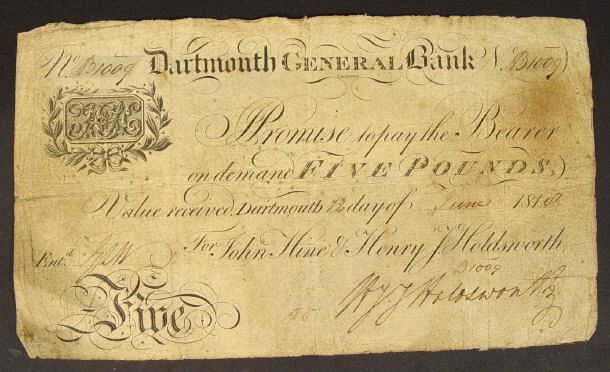 No. B1009 Dartmouth GENERAL Bank No. B1009
I Promise to pay the Bearer
on demand FIVE POUNDS,
Value received, Dartmouth 12 day of June 181
For John Hine & Henry J. Holdsworth,
Ent.d
B1009
Holdsworth
Five